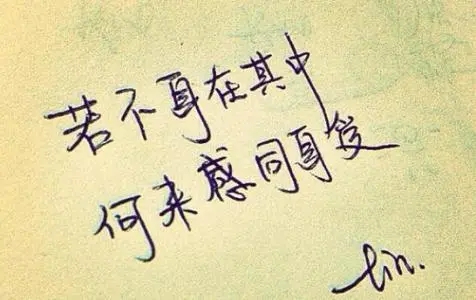 若不身在其中
何来感同身受
lin.